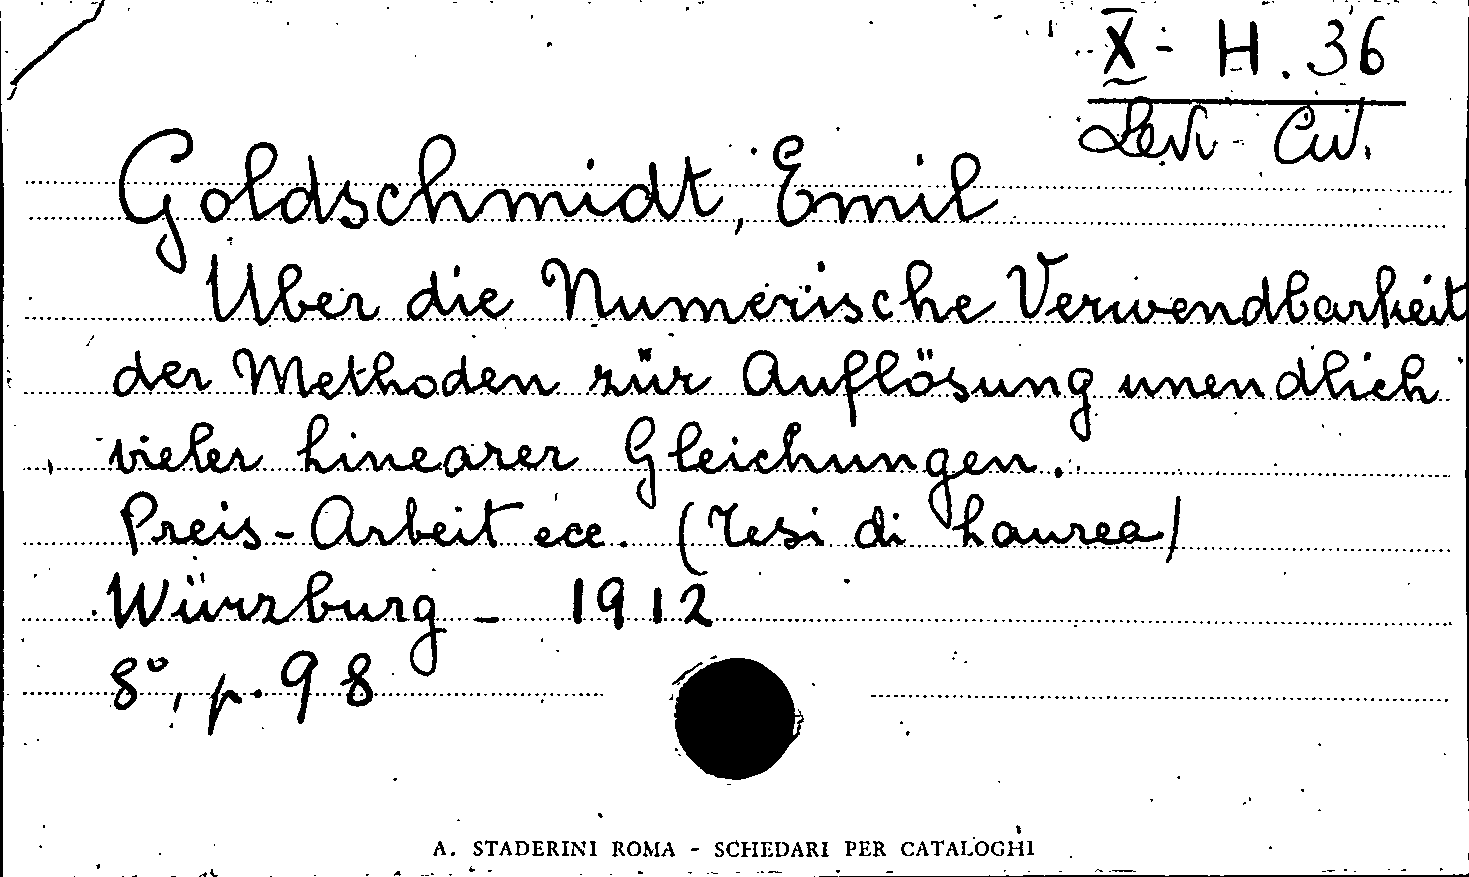 X - H. 36
Levi - Civ.
Goldschmidt, Emil
Uber die Numerische Verwendbarkeit
der Methoden zür Auflösung unendlich
vieler Linearer Gleichungen.
Preis - Arbeit ecc. (Tesi di Laurea)
Würzburg - 1912
8°, p. 98
A. STADERINI ROMA - SCHEDARI PER CATALOGHI